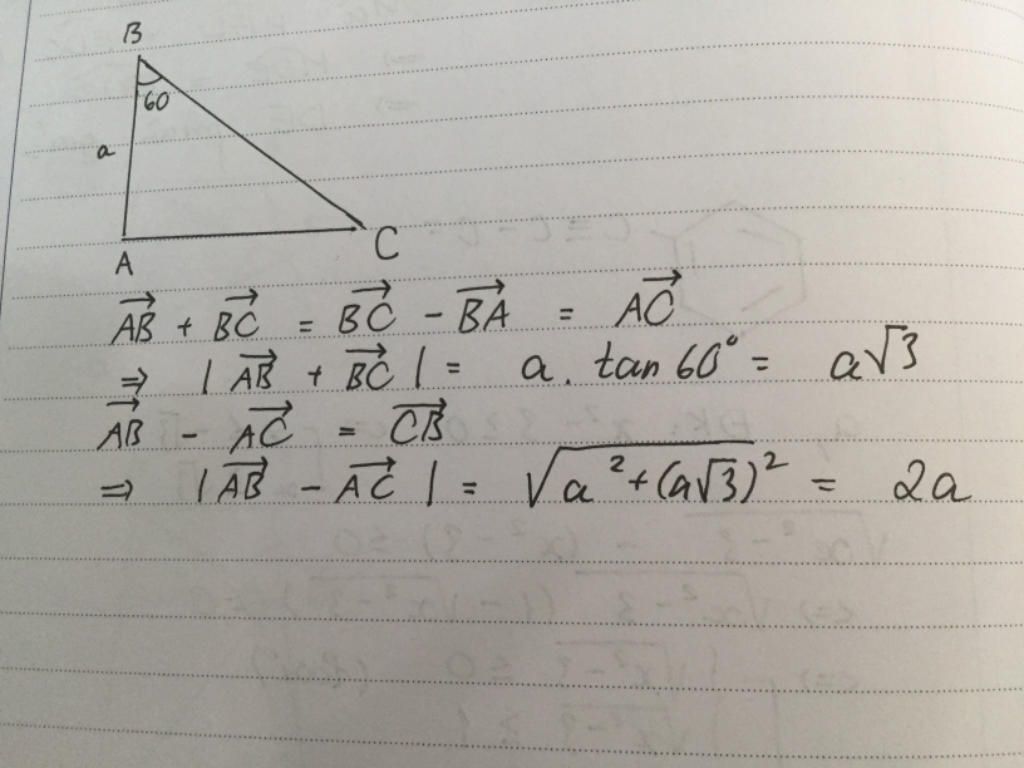 B
60
a
A
C
AB⃗ + BC⃗ = BC⃗ - BA⃗ = AC⃗
⇒ | AB⃗ + BC⃗ | = a. tan 60° = a√3
AB⃗ - AC⃗ = CB⃗
⇒ | AB⃗ - AC⃗ | = √(a² + (a√3)²) = 2a